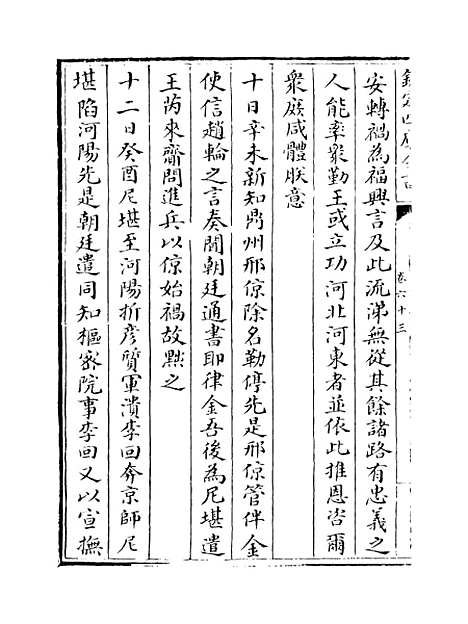 欽定四庫全書
卷六十三
安轉禍為福興言及此流涕無從其餘諸路有忠義之
人能率衆勤王或立功河北河東者並依此推恩咨爾
衆庶咸體朕意
十日辛未新知鼎州邢倞除名勒停先是邢倞管伴金
使信趙輪之言奏聞朝廷通書耶律金吾後為尼堪遣
王芮來齎問進兵以倞始禍故黜之
十二日癸酉尼堪至河陽折彦質軍潰李回奔京師尼
堪陷河陽先是朝廷遣同知樞密院事李回又以宣撫